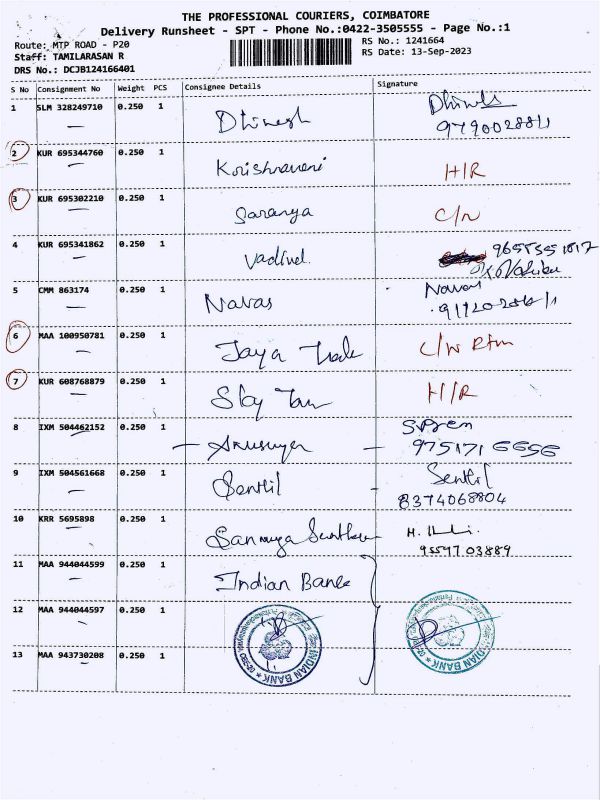 THE PROFESSIONAL COURIERS, COIMBATORE
Delivery Runsheet - SPT - Phone No.:0422-3505555 - Page No.:1
Route: MTP ROAD - P20
RS No.: 1241664
Staff: TAMILARASAN R
RS Date: 13-Sep-2023
DRS No.: DCJB124166401
S No Consignment No Weight PCS Consignee Details Signature
1 SLM 328249710 0.250 1 Dhinesh
2 KUR 695344760 0.250 1 Krishnaveni H/R
3 KUR 695302210 0.250 1 Saranya C/N
4 KUR 695341862 0.250 1 Vadivel
5 CMM 863174 0.250 1 Navas Navas
6 MAA 100950781 0.250 1 Jaya Trade
7 KUR 608768879 0.250 1 Sky H/R
8 IXM 504462152 0.250 1 
9751716656
9 IXM 504561668 0.250 1 Senthil Senthil
8374068804
10 KRR 5695898 0.250 1
11 MAA 944044599 0.250 1 Indian Bank
12 MAA 944044597 0.250 1
13 MAA 943730208 0.250 1
INDIAN BANK
INDIAN BANK